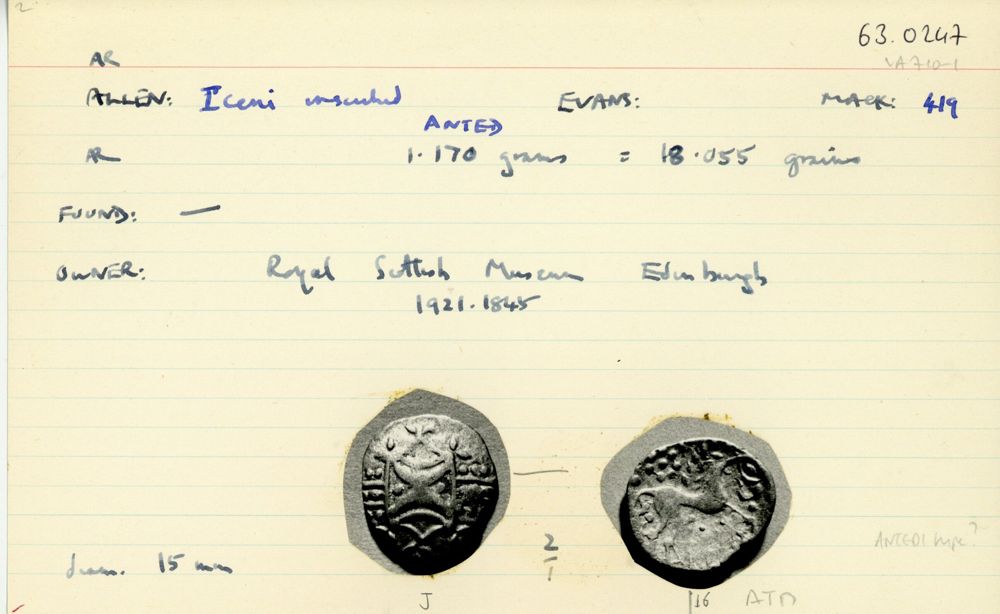 63.0247
VA 710-1
AR
ALLEN: Iceni inscribed EVANS: MACK: 419
ANTED
AR 1.170 grams = 18.055 grains
FOUND: —
OWNER: Royal Scottish Museum Edinburgh
1921.1845
ANTEDI type?
diam. 15 mm 2/1
J 16 ATD